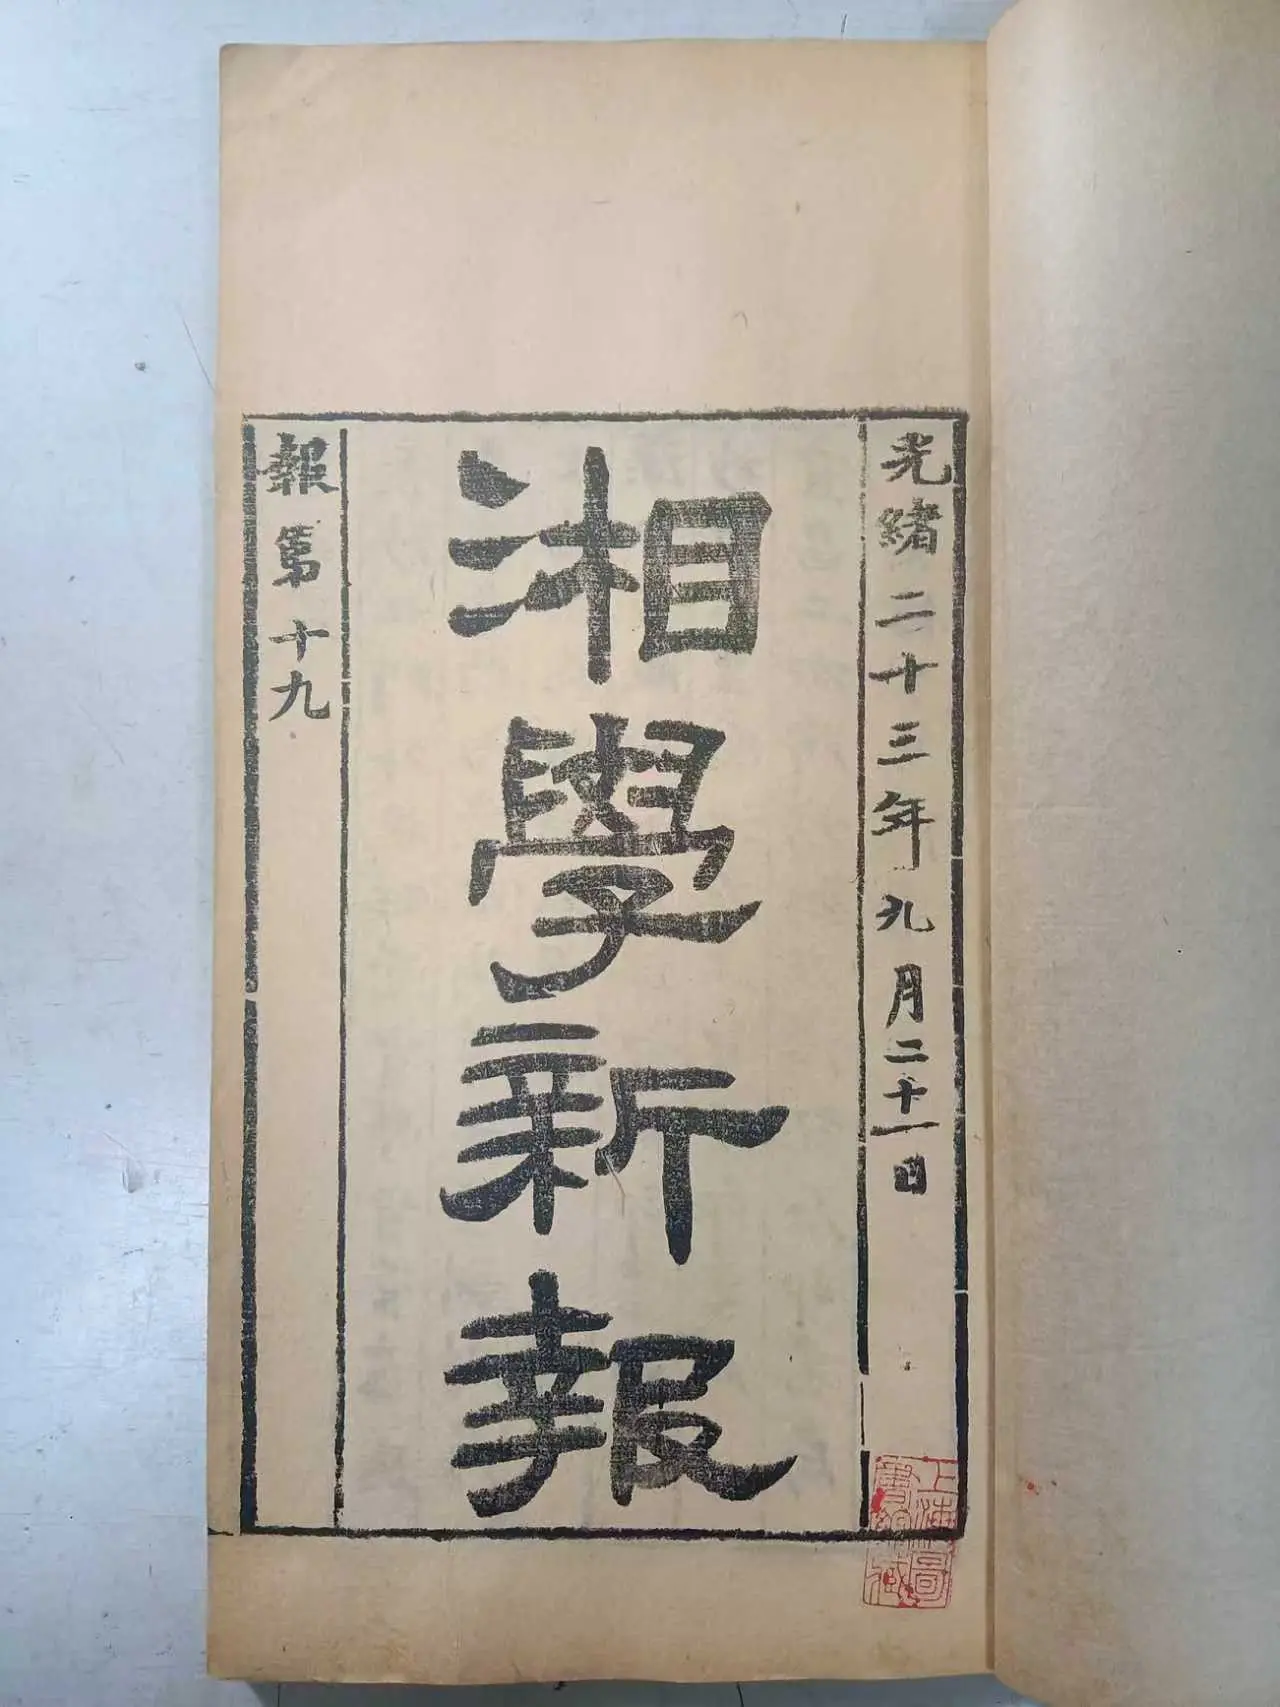 光緒二十三年九月二十一日
湘學新報
報第十九
上海圖
書館藏